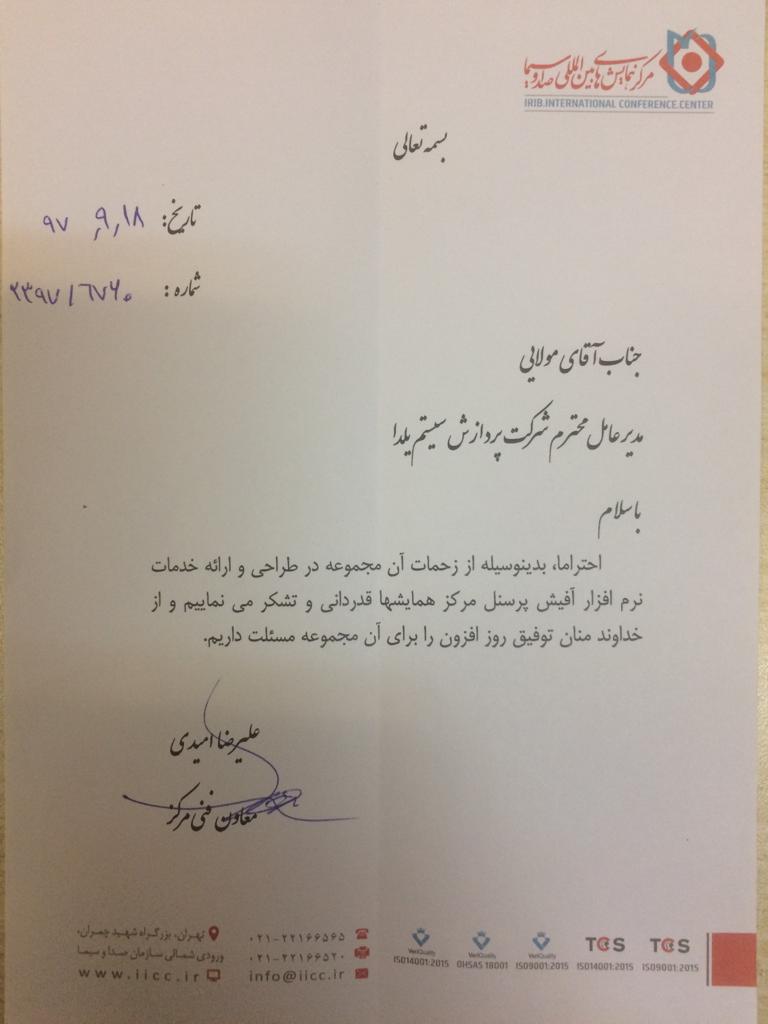 مرکز نمایش‌های بین‌المللی صدا و سیما
IRIB.INTERNATIONAL CONFERENCE.CENTER
بسمه تعالی
تاریخ: ۹۷ ,۹,۱۸
شماره :
جناب آقای مولایی
مدیر عامل محترم شرکت پردازش سیستم یلدا
با سلام
احتراما، بدینوسیله از زحمات آن مجموعه در طراحی و ارائه خدمات
نرم افزار آفیش پرسنل مرکز همایشها قدردانی و تشکر می نماییم و از
خداوند منان توفیق روز افزون را برای آن مجموعه مسئلت داریم.
علیرضا امیدی
معاون فنی مرکز
تهران، بزرگراه شهید چمران،
ورودی شمالی سازمان صدا و سیما
www.iicc.ir
۰۲۱-۲۲۱۶۶۵۶۵
۰۲۱-۲۲۱۶۶۵۲۰
info@iicc.ir
VeriQuality ISO14001:2015
VeriQuality OHSAS 18001
VeriQuality ISO9001:2015
TCS ISO14001:2015
TCS ISO9001:2015